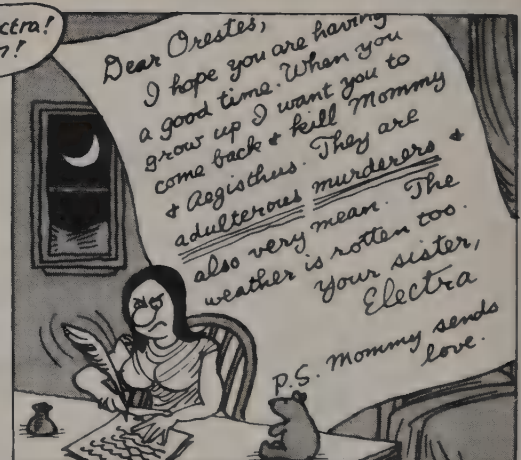 ctra!
n!
Dear Orestes,
I hope you are having
a good time. When you
grow up I want you to
come back & kill Mommy
& Aegisthus. They are
adulterous murderers &
also very mean. The
weather is rotten too.
Your sister,
Electra
P.S. Mommy sends
love.